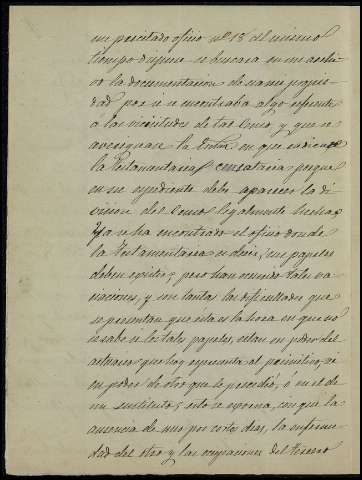 mi precitado oficio nº 13 al mismo
tiempo dispuse se buscara en mi archi
vo la documentacion de una propie
dad por si se encontraba algo referente
a las vicisitudes de tal Censo y que se
averiguase la en que
la Testamentaria porque
en su espediente debe aparecer la di
vision del Censo legalmente hecha;
Ya se ha encontrado el oficio donde
la Testamentaria se cuyos papeles
deben existir, pero han ocurrido tales va
riaciones, y son tantas las dificultades que
se presentan que esta es la hora en que no
se sabe si los tales papeles, estan en poder del
actuario que hoy representa al primitivo, si
en poder de otro que le precedió, ó en el de
un sustituto; esto se escusa, con que la
ausencia de uno por ocho dias, la enferme
dad del otro y las ocupaciones del tercero